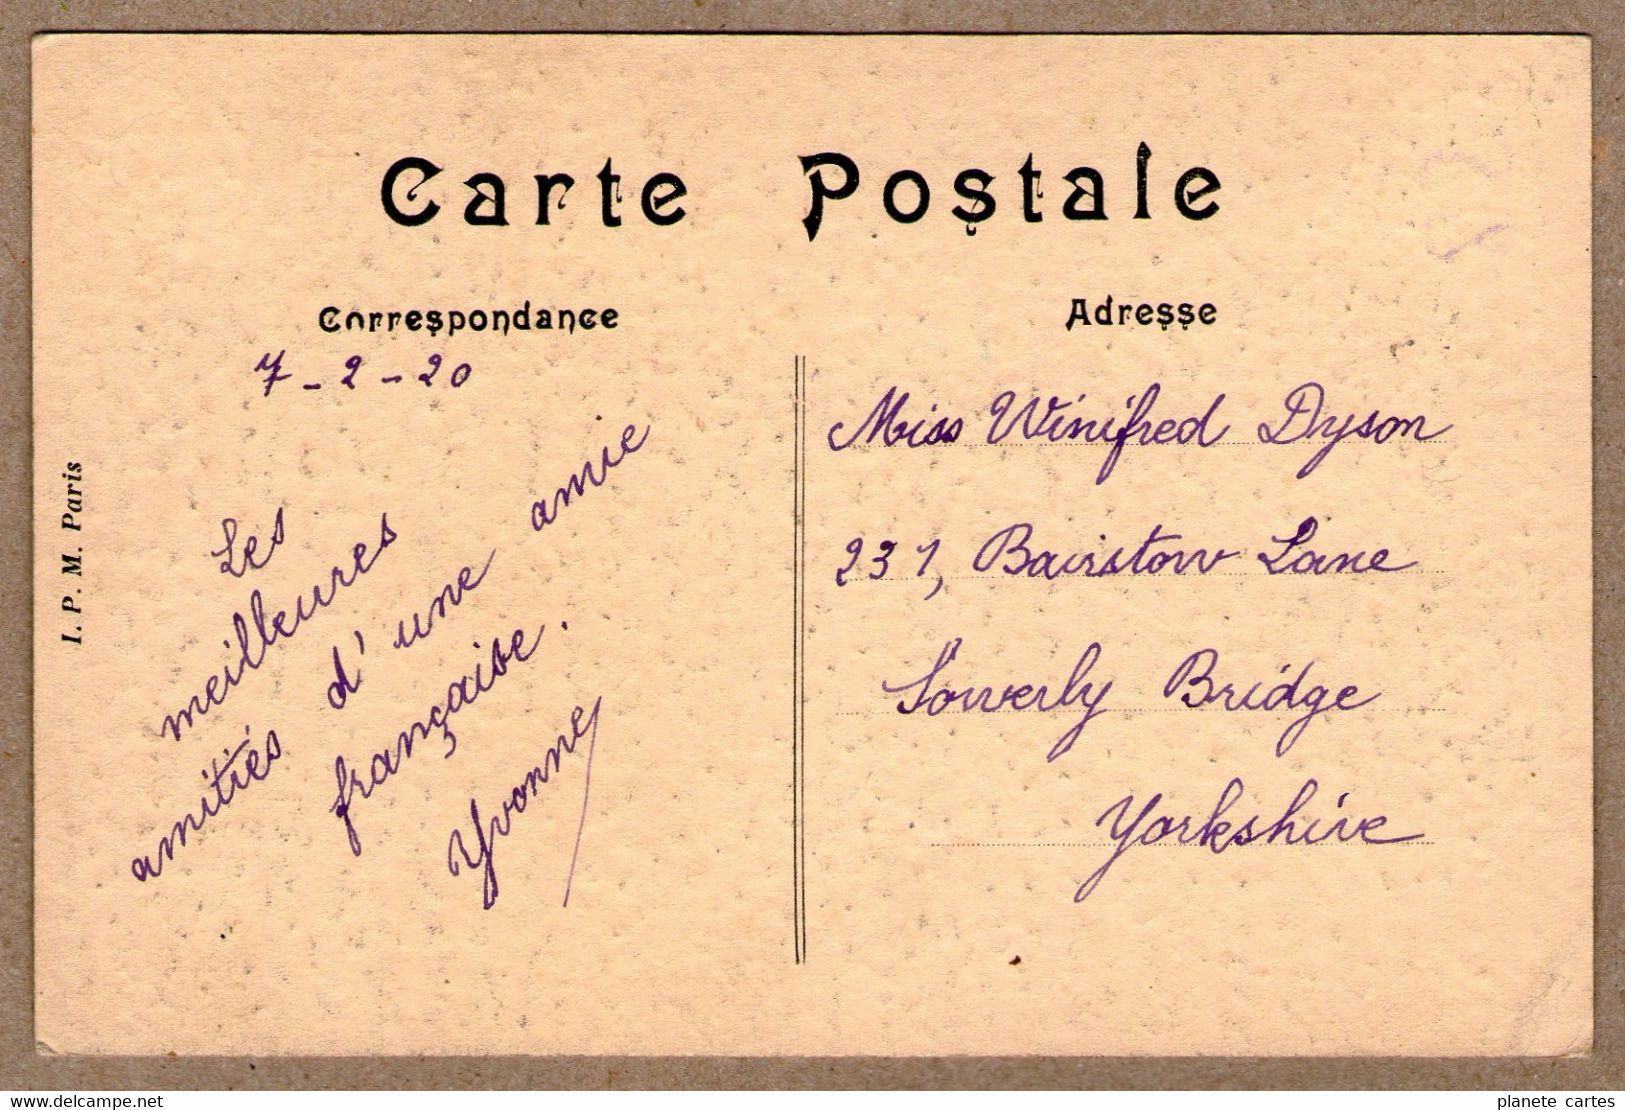 Carte Postale
Correspondance
7-2-20
Les
meilleures
amitiés d'une amie
française.
Yvonne
I. P. M. Paris
Adresse
Miss Winifred Dyson
231, Bairstow Lane
Sowerly Bridge
Yorkshire
delcampe.net
planete cartes